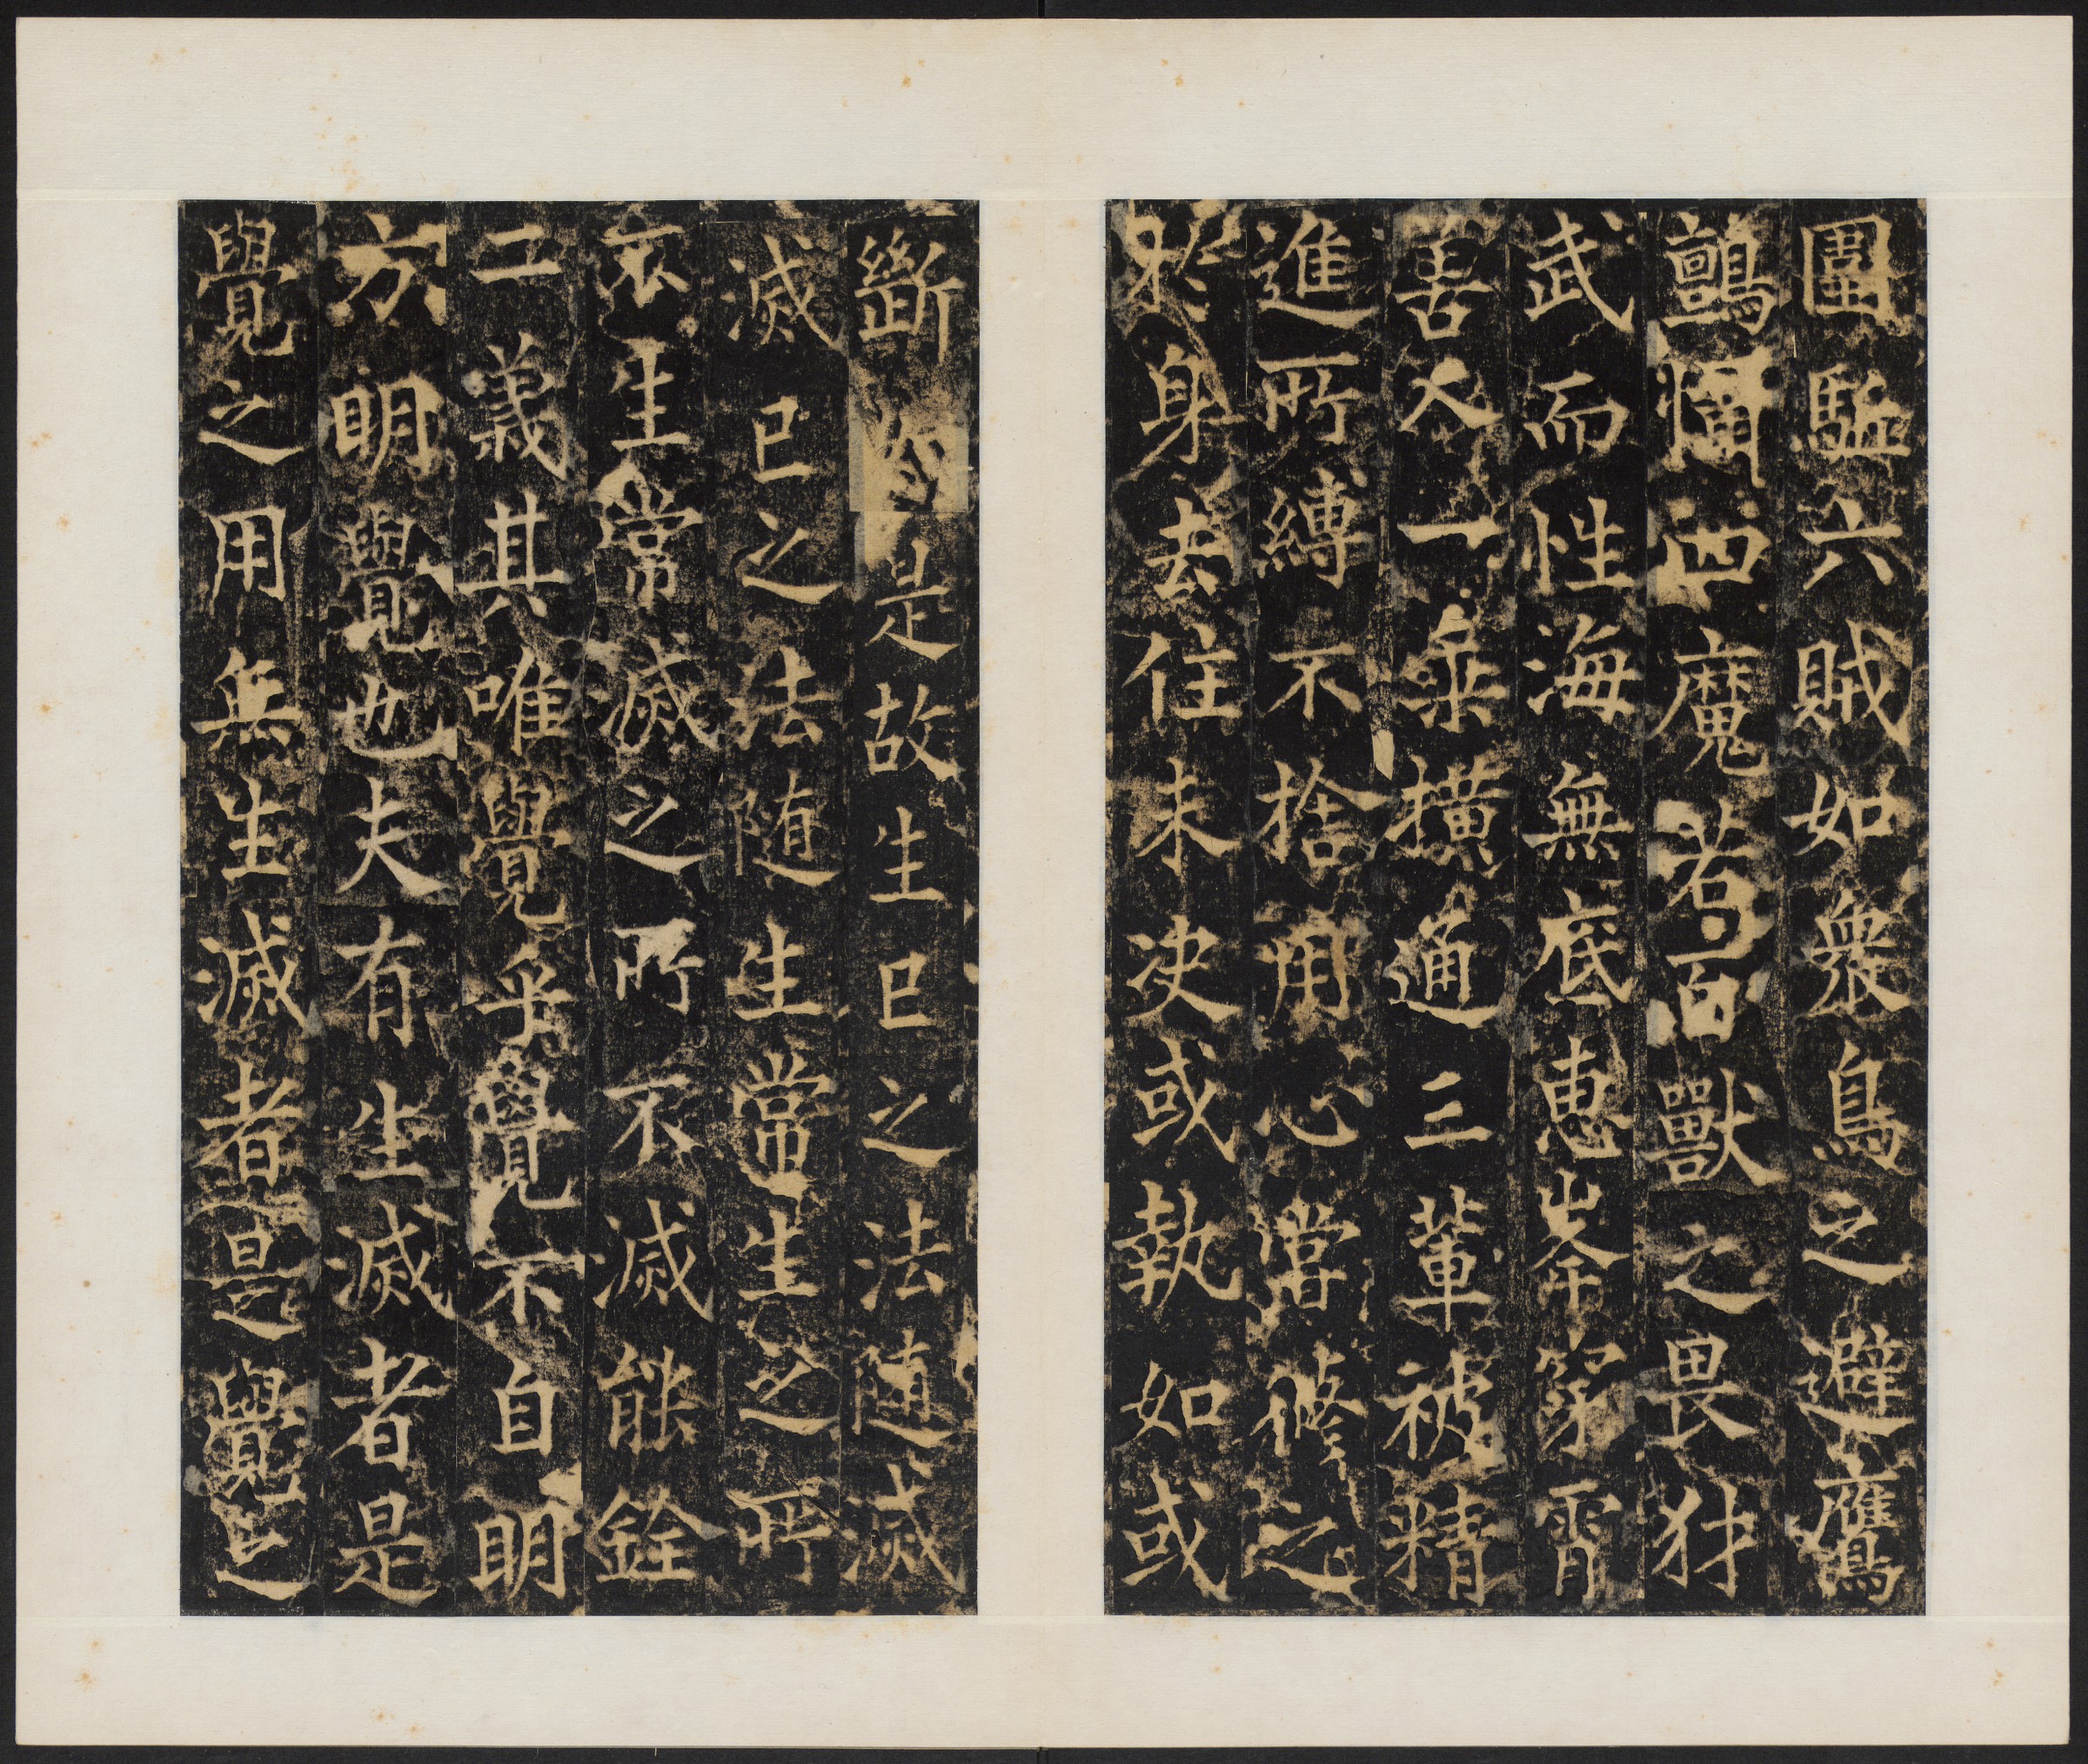 圍駈六賊如衆鳥之避鷹
鸇懾四魔若百獸之畏犲
武而性海無底惠峯穿霄
善入一乗撗通三輩被精
進所縛不捨用心嘗脩之
於身去住未决或執如或
斷是故生已之法随滅
滅已之法随生常生之所
不生常滅之所不滅能銓
二義其唯覺乎覺不自明
方明覺也夫有生滅者是
覺之用無生滅者是覺之